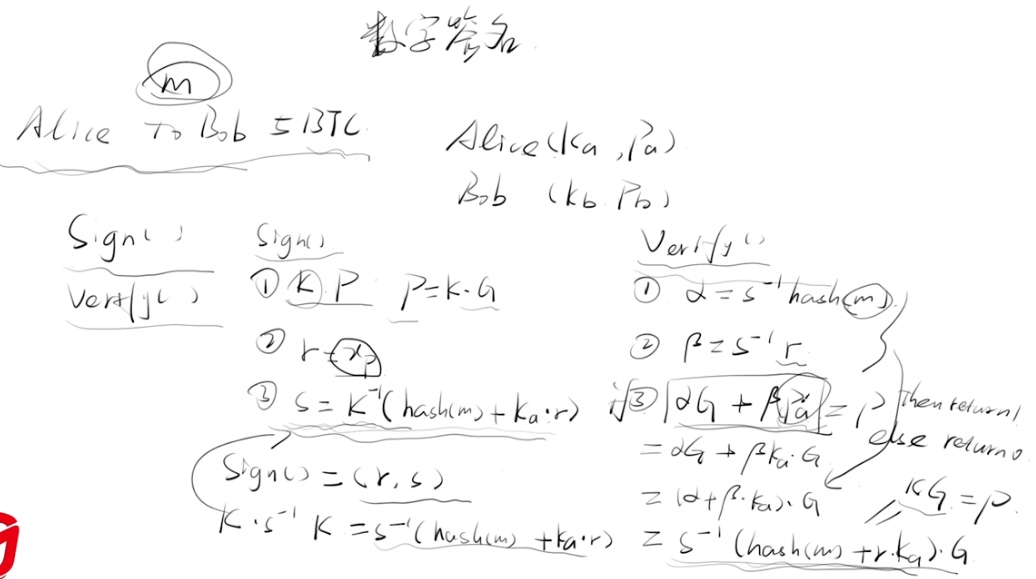 数字签名
m
Alice to Bob 5BTC
Alice (Ka, Pa)
Bob (Kb Pb)
Sign()
Verify()
Sign()
① K P P=K·G
② r = xp
③ s = K⁻¹(hash(m) + Ka·r)
Sign() = (r, s)
K·s⁻¹ K = s⁻¹(hash(m) + Ka·r)
Verify()
① α = s⁻¹hash(m)
② β = s⁻¹ r
if ③ αG + βPa = P then return 1
else return 0
= αG + βKa·G
= (α+β·Ka)·G
= s⁻¹(hash(m) + r·Ka)·G
KG = P